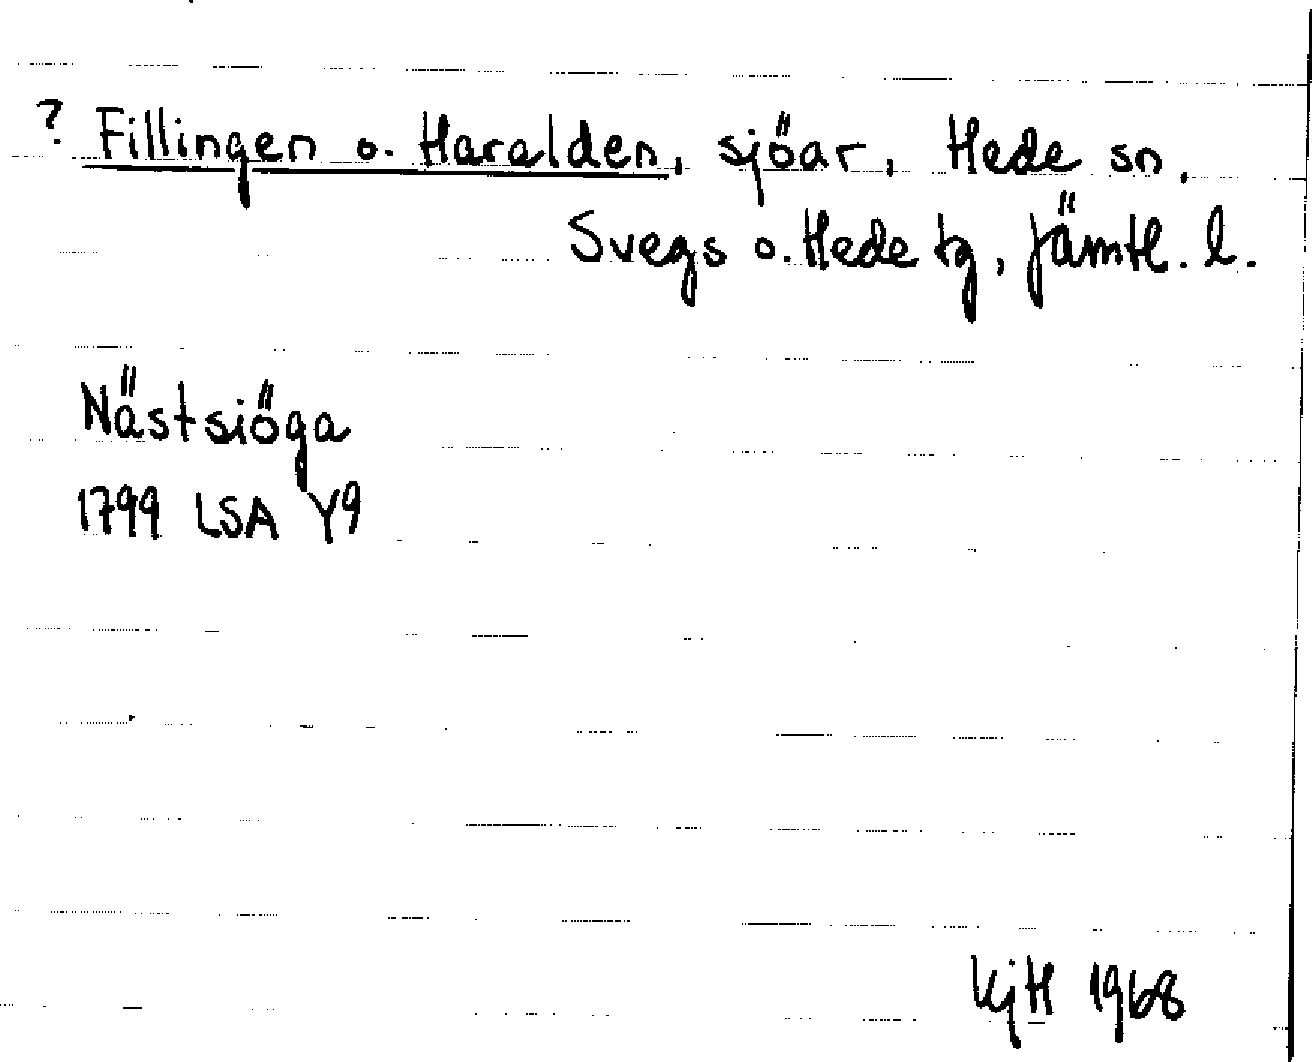 ? Fillingen o. Haralden, sjöar, Hede sn,
Svegs o. Hede tg, Jämtl. l.
Nästsiöga
1799 LSA Y9
KjH 1968